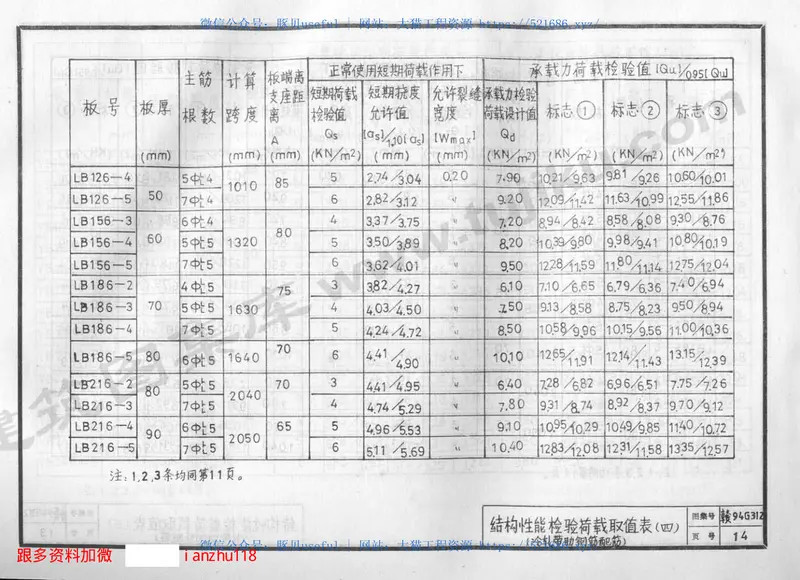 微信公众号：豚贝useful | 网站：大猫工程资源 https://521686.xyz/
板号 板厚 (mm) 主筋根数 计算跨度 (mm) 板端离支座距离 A (mm) 正常使用短期荷载作用下 承载力荷载检验值[Qu]/0.95[Qu]
短期荷载检验值 Qs (KN/m²) 短期挠度允许值 [as]/1.10[as] (mm) 允许裂缝宽度 [Wmax] (mm) 承载力检验荷载设计值 Qd (KN/m²) 标志① (KN/m²) 标志② (KN/m²) 标志③ (KN/m²)
LB126-4 50 5Φᵗ4 1010 85 5 2.74/3.04 0.20 7.90 10.21/9.63 9.81/9.26 10.60/10.01
LB126-5 7Φᵗ4 6 2.82/3.12 〃 9.20 12.09/11.42 11.63/10.99 12.55/11.86
LB156-3 60 6Φᵗ4 1320 80 4 3.37/3.75 〃 7.20 8.94/8.42 8.58/8.08 9.30/8.76
LB156-4 5Φᵗ5 5 3.50/3.89 〃 8.20 10.39/9.80 9.98/9.41 10.80/10.19
LB156-5 7Φᵗ5 6 3.62/4.01 〃 9.50 12.28/11.59 11.80/11.14 12.75/12.04
LB186-2 70 4Φᵗ5 1630 75 3 3.82/4.27 〃 6.10 7.10/6.65 6.79/6.36 7.40/6.94
LB186-3 5Φᵗ5 4 4.03/4.50 〃 7.50 9.13/8.58 8.75/8.23 9.50/8.94
LB186-4 7Φᵗ5 5 4.24/4.72 〃 8.50 10.58/9.96 10.15/9.56 11.00/10.36
LB186-5 80 6Φᵗ5 1640 70 6 4.41/4.90 〃 10.10 12.65/11.91 12.14/11.43 13.15/12.39
LB216-2 80 5Φᵗ5 2040 70 3 4.41/4.95 〃 6.40 7.28/6.82 6.96/6.51 7.75/7.26
LB216-3 7Φᵗ5 4 4.74/5.29 〃 7.80 9.31/8.74 8.92/8.37 9.70/9.12
LB216-4 90 6Φᵗ5 2050 65 5 4.96/5.53 〃 9.10 10.95/10.29 10.49/9.85 11.40/10.72
LB216-5 7Φᵗ5 6 5.11/5.69 〃 10.40 12.83/12.08 12.31/11.58 13.35/12.57
注：1,2,3条均同第11页。
结构性能检验荷载取值表(四) 图集号 赣94G312
(冷轧带肋钢筋配筋) 页号 14
跟多资料加微 ianzhu118
微信公众号：豚贝useful | 网站：大猫工程资源 https://521686.xyz/